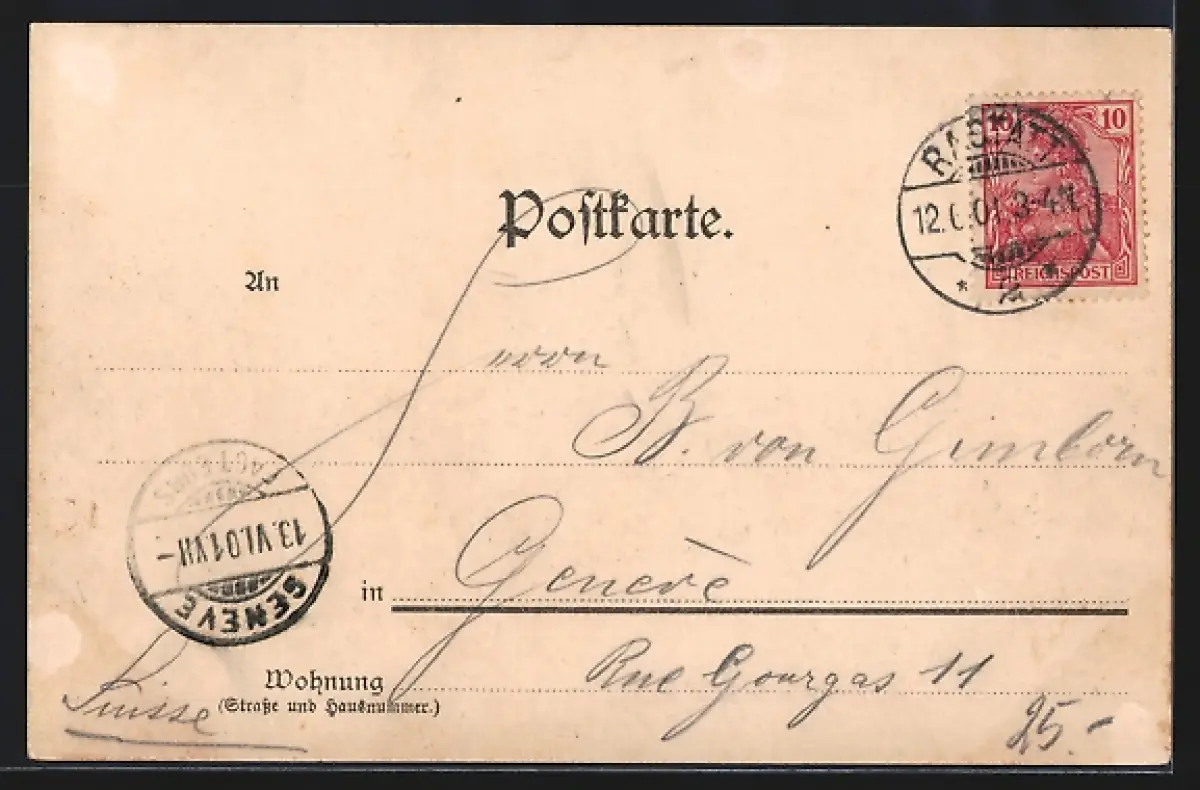 Postkarte.
10 10
RASTATT
12.6.01. 3-4N.
* 2 *
REICHSPOST
An
B. von Gimborn
in Genève
Wohnung Rue Gourgas 11
(Straße und Hausnummer.)
Suisse
25.-
13.VI.01.VII-
GENÈVE